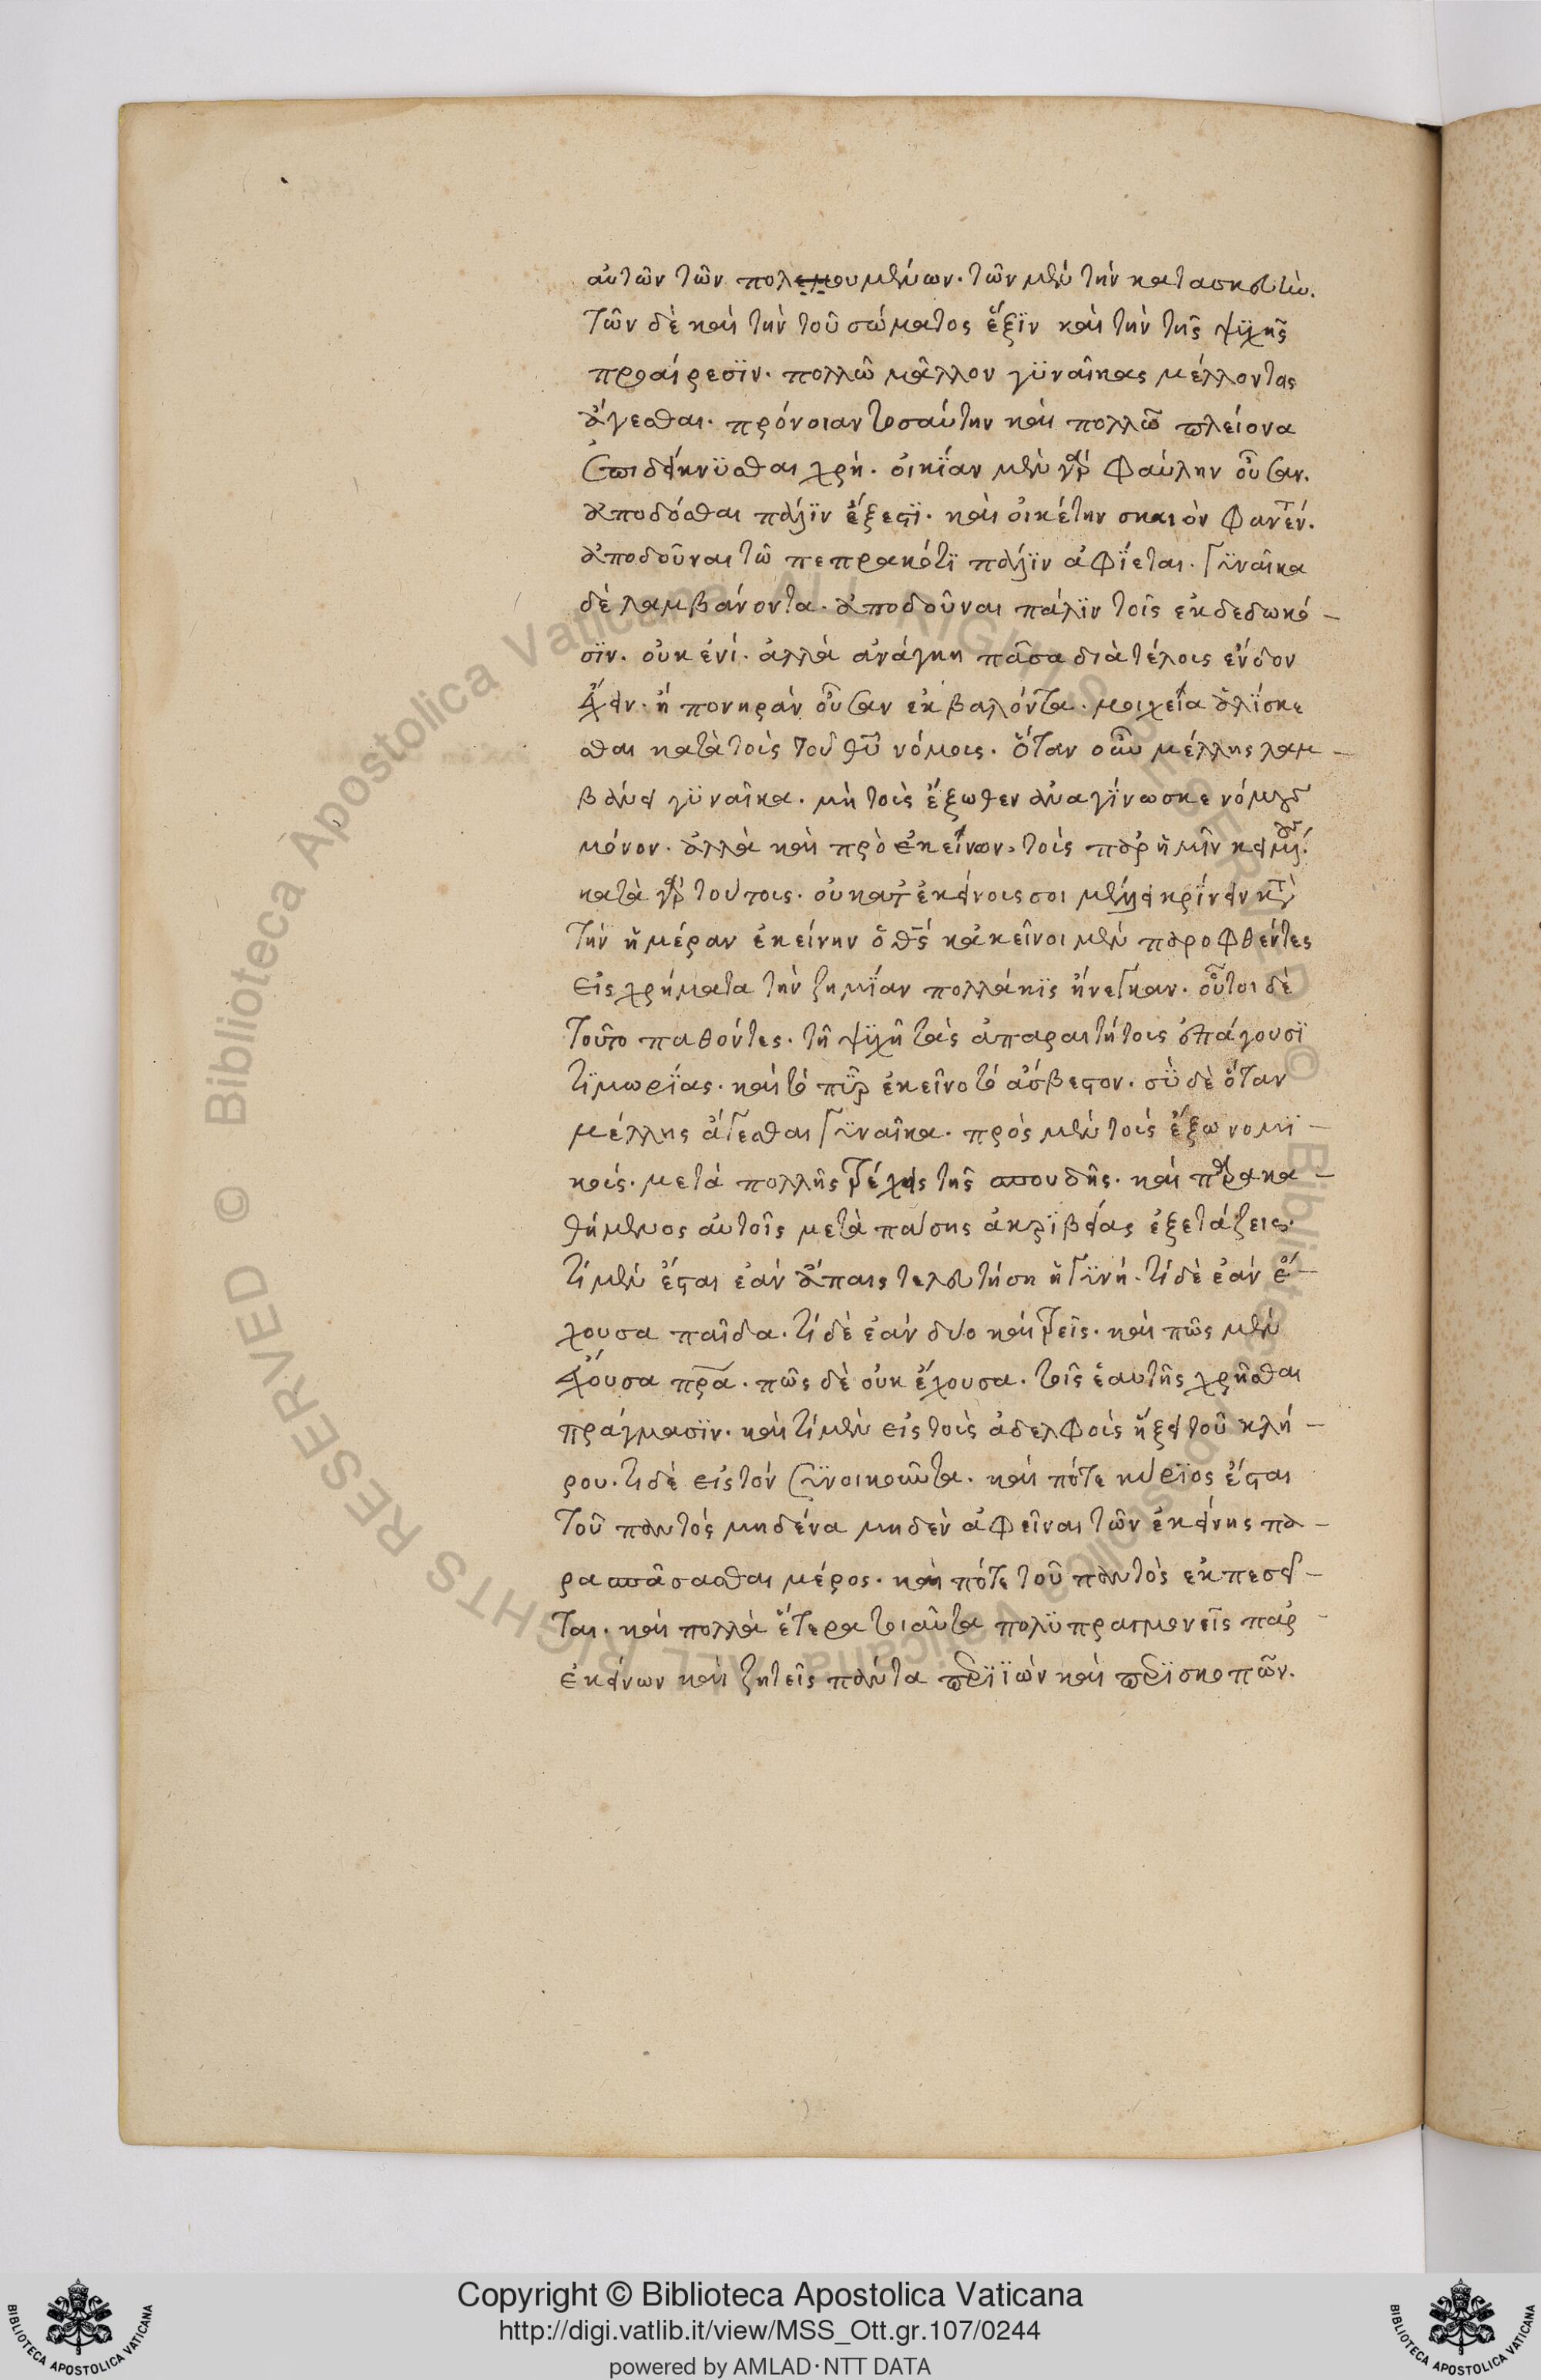 αὐτῶν τῶν πολεμουμένων· τῶν μὲν τὴν κατασκευὴν·
τῶν δὲ καὶ τὴν τοῦ σώματος ἕξϊν καὶ τὴν τῆς ψϋχῆς
προαίρεσϊν· πολλῶ μᾶλλον γϋναῖκας μέλλοντας
ἄγεσθαι· πρόνοιαν τοσαύτην καὶ πολλῶ πλείονα
ἐπιδείκνϋσθαι χρὴ· οἰκΐαν μὲν γὰρ φαύλην οὖσαν·
ἀποδόσθαι πάλϊν ἔξεστϊ· καὶ οἰκέτην σκαιὸν φανέντ·
ἀποδοῦναι τῶ πεπρακότϊ πάλϊν ἀφΐεται· γϋναῖκα
δὲ λαμβάνοντα· ἀποδοῦναι πάλϊν τοῖς ἐκδεδωκό-
σϊν· οὐκ ἐνί· ἀλλὰ ἀνάγκη πᾶσα διατέλους ἔνδον
ἔχειν· ἢ πονηρὰν οὖσαν ἐκβαλόντα· μοιχεία ἁλίσκε
σθαι κατὰ τοὺς τοῦ θῦ νόμους· ὅταν οὖν μέλλης λαμ-
βάνειν γϋναῖκα· μὴ τοὺς ἔξωθεν ἀναγίνωσκε νόμους
μόνον· ἀλλὰ καὶ πρὸ ἐκείνων· τοὺς παρ ἡμῖν κειμένους·
κατὰ γὰρ τούτους· οὐ κατ ἐκείνους σοι μέλλει κρίνειν κατὰ
τὴν ἡμέραν ἐκείνην ὁ θς κἀκεῖνοι μὲν παροφθέντες
εἰς χρήματα τὴν ζημΐαν πολλάκϊς ἤνεγκαν· οὗτοι δὲ
τοῦτο παθόντες· τῆ ψϋχῆ τὰς ἀπαραιτήτους ἐπάγουσϊ
τϊμωρΐας· καὶ τὸ πῦρ ἐκεῖνο τὸ ἄσβεστον· σϋ δὲ ὅταν
μέλλης ἄγεσθαι γϋναῖκα· πρὸς μὲν τοὺς ἔξω νομϊ-
κοὺς· μετὰ πολλῆς τρέχεις τῆς σπουδῆς· καὶ παρακα-
θήμενος αὐτοῖς μετὰ πάσης ἀκρϊβείας ἐξετάζεις·
τί μὲν ἔσται ἐὰν ἄπαις τελευτήση ἡ γϋνή· τί δὲ ἐὰν ἔ-
χουσα παῖδα· τί δὲ ἐὰν δύο καὶ τρεῖς· καὶ πῶς μὲν
ἔχουσα πρα· πῶς δὲ οὐκ ἔχουσα· τοῖς ἑαυτῆς χρῆσθαι
πράγμασϊν· καὶ τί μὲν εἰς τοὺς ἀδελφοὺς ἥξει τοῦ κλή-
ρου· τι δὲ εἰς τὸν σϋνοικοῦντα· καὶ πότε κύρϊος ἔσται
τοῦ παντὸς μηδένα μηδὲν ἀφεῖναι τῶν ἐκείνης πα-
ρασπάσασθαι μέρος· καὶ πότε τοῦ παντὸς ἐκπεσεῖ-
ται· καὶ πολλὰ ἕτερα τοιαῦτα πολϋπραγμονεῖς παρ-
ἐκείνων καὶ ζητεῖς πάντα περϊϊὼν καὶ περϊσκοπῶν·
© Biblioteca Apostolica Vaticana ALL RIGHTS RESERVED
© Biblioteca Apostolica Vaticana ALL RIGHTS RESERVED
Copyright © Biblioteca Apostolica Vaticana
http://digi.vatlib.it/view/MSS_Ott.gr.107/0244
powered by AMLAD·NTT DATA
BIBLIOTECA APOSTOLICA VATICANA
BIBLIOTECA APOSTOLICA VATICANA